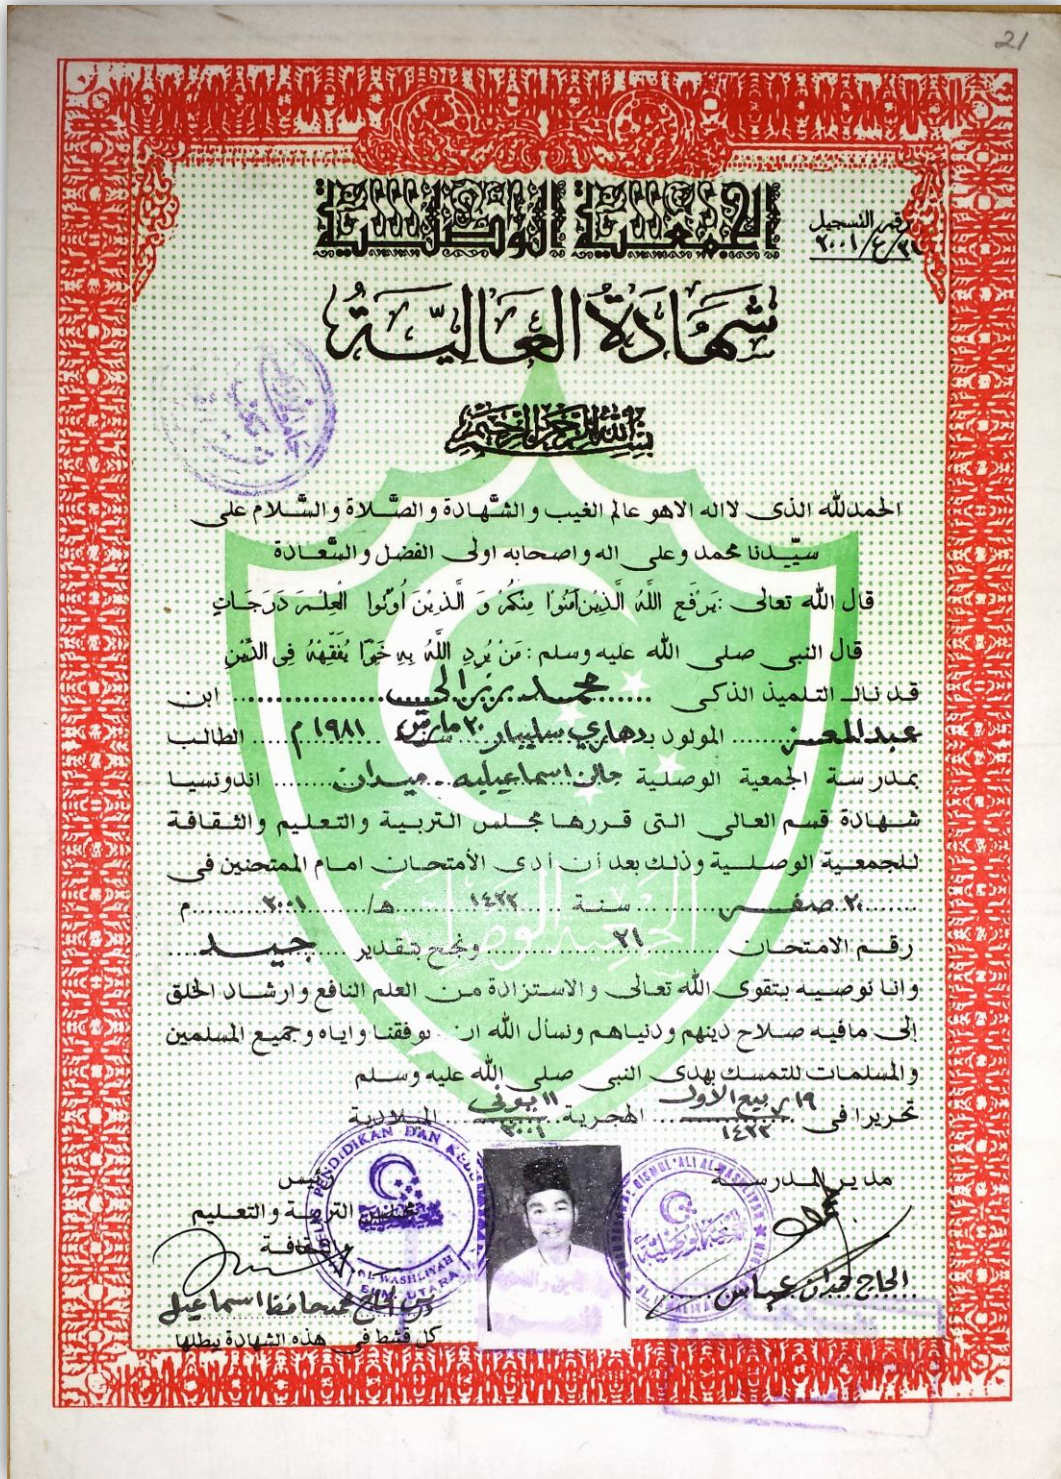 21
الجمعية الوصلية
رقم التسجيل
٢١/ع/٢٠٠١
شهادة العالية
بسم الله الرحمن الرحيم
الحمدلله الذى لااله الاهو عالم الغيب والشّهادة والصّلاة والسّلام على
سيّدنا محمد وعلى اله واصحابه اولى الفضل والسّعادة
قال الله تعالى : يَرْفَعِ اللَّهُ الَّذِيْنَ آمَنُوْا مِنْكُمْ وَ الَّذِيْنَ اُوْتُوا الْعِلْمَ دَرَجَاتٍ
قال النبى صلى الله عليه وسلم : مَنْ يُرِدِ اللَّهُ بِهِ خَيْرًا يُفَقِّهْهُ فِى الدِّيْنِ
قد نال التلميذ الذكى محمد ابن
عبد المعز المولود بدهاري سليبار ٢٠ مارس سنة ١٩٨١ م الطالب
بمدرسة الجمعية الوصلية جالن اسماعيليه - ميدان اندونسيا
شهادة قسم العالى التى قررها مجلس التربية والتعليم والثقافة
للجمعية الوصلية وذلك بعد أن أدى الأمتحان امام الممتحنين فى
٢٠ صفر سنة ١٤٢٢ ه/ ٢٠٠١ م
رقم الامتحان ٢١ ونجح بتقدير جيد
وانا نوصيه بتقوى الله تعالى والاستزادة من العلم النافع وارشاد الخلق
إلى مافيه صلاح دينهم ودنياهم ونسأل الله ان يوفقنا واياه وجميع المسلمين
والمسلمات للتمسك بهدى النبى صلى الله عليه وسلم
تحريرا فى ١٩ ربيع الاول ١٤٢٢ الهجرية ١١ يونى ٢٠٠١ الميلادية
مدير المدرسة
رئيس
مجلس التربية والتعليم
والثقافة
PENDIDIKAN DAN
AL WASHLIYAH
QISMUL 'ALI AL WASHLIYAH
الحاج حمدان عباس
الحاج محمد حافظ اسماعيل
كل قشط فى هذه الشهادة يبطلها